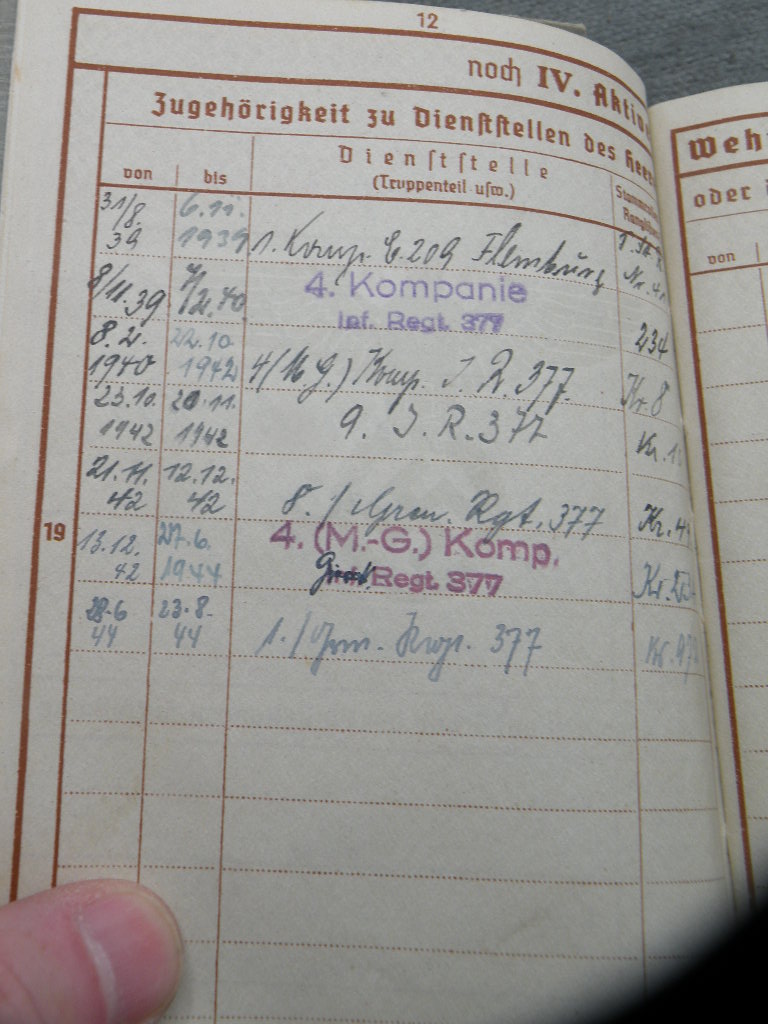 12
noch IV. Aktiv
Zugehörigkeit zu Dienststellen des Heer
von bis Dienststelle
(Truppenteil usw.)
31/8. 39 6.11. 1939 1. Komp. E. 209 Flensburg
8/11.39 7/12.40 4. Kompanie
Inf. Regt. 377 234
8.2. 1940 22.10 1942 4/(M.G.) Komp. J. R. 377. Kr. 8
23.10. 1942 20.11. 1942 9. J.R. 377 Kr. 1
21.11. 42 12.12. 42 8./Gren. Rgt. 377 Kr. 4
19
13.12. 42 27.6. 1944 4. (M.-G.) Komp.
Gren. Regt. 377
28.6 44 23.8. 44 377
Weh
oder
von